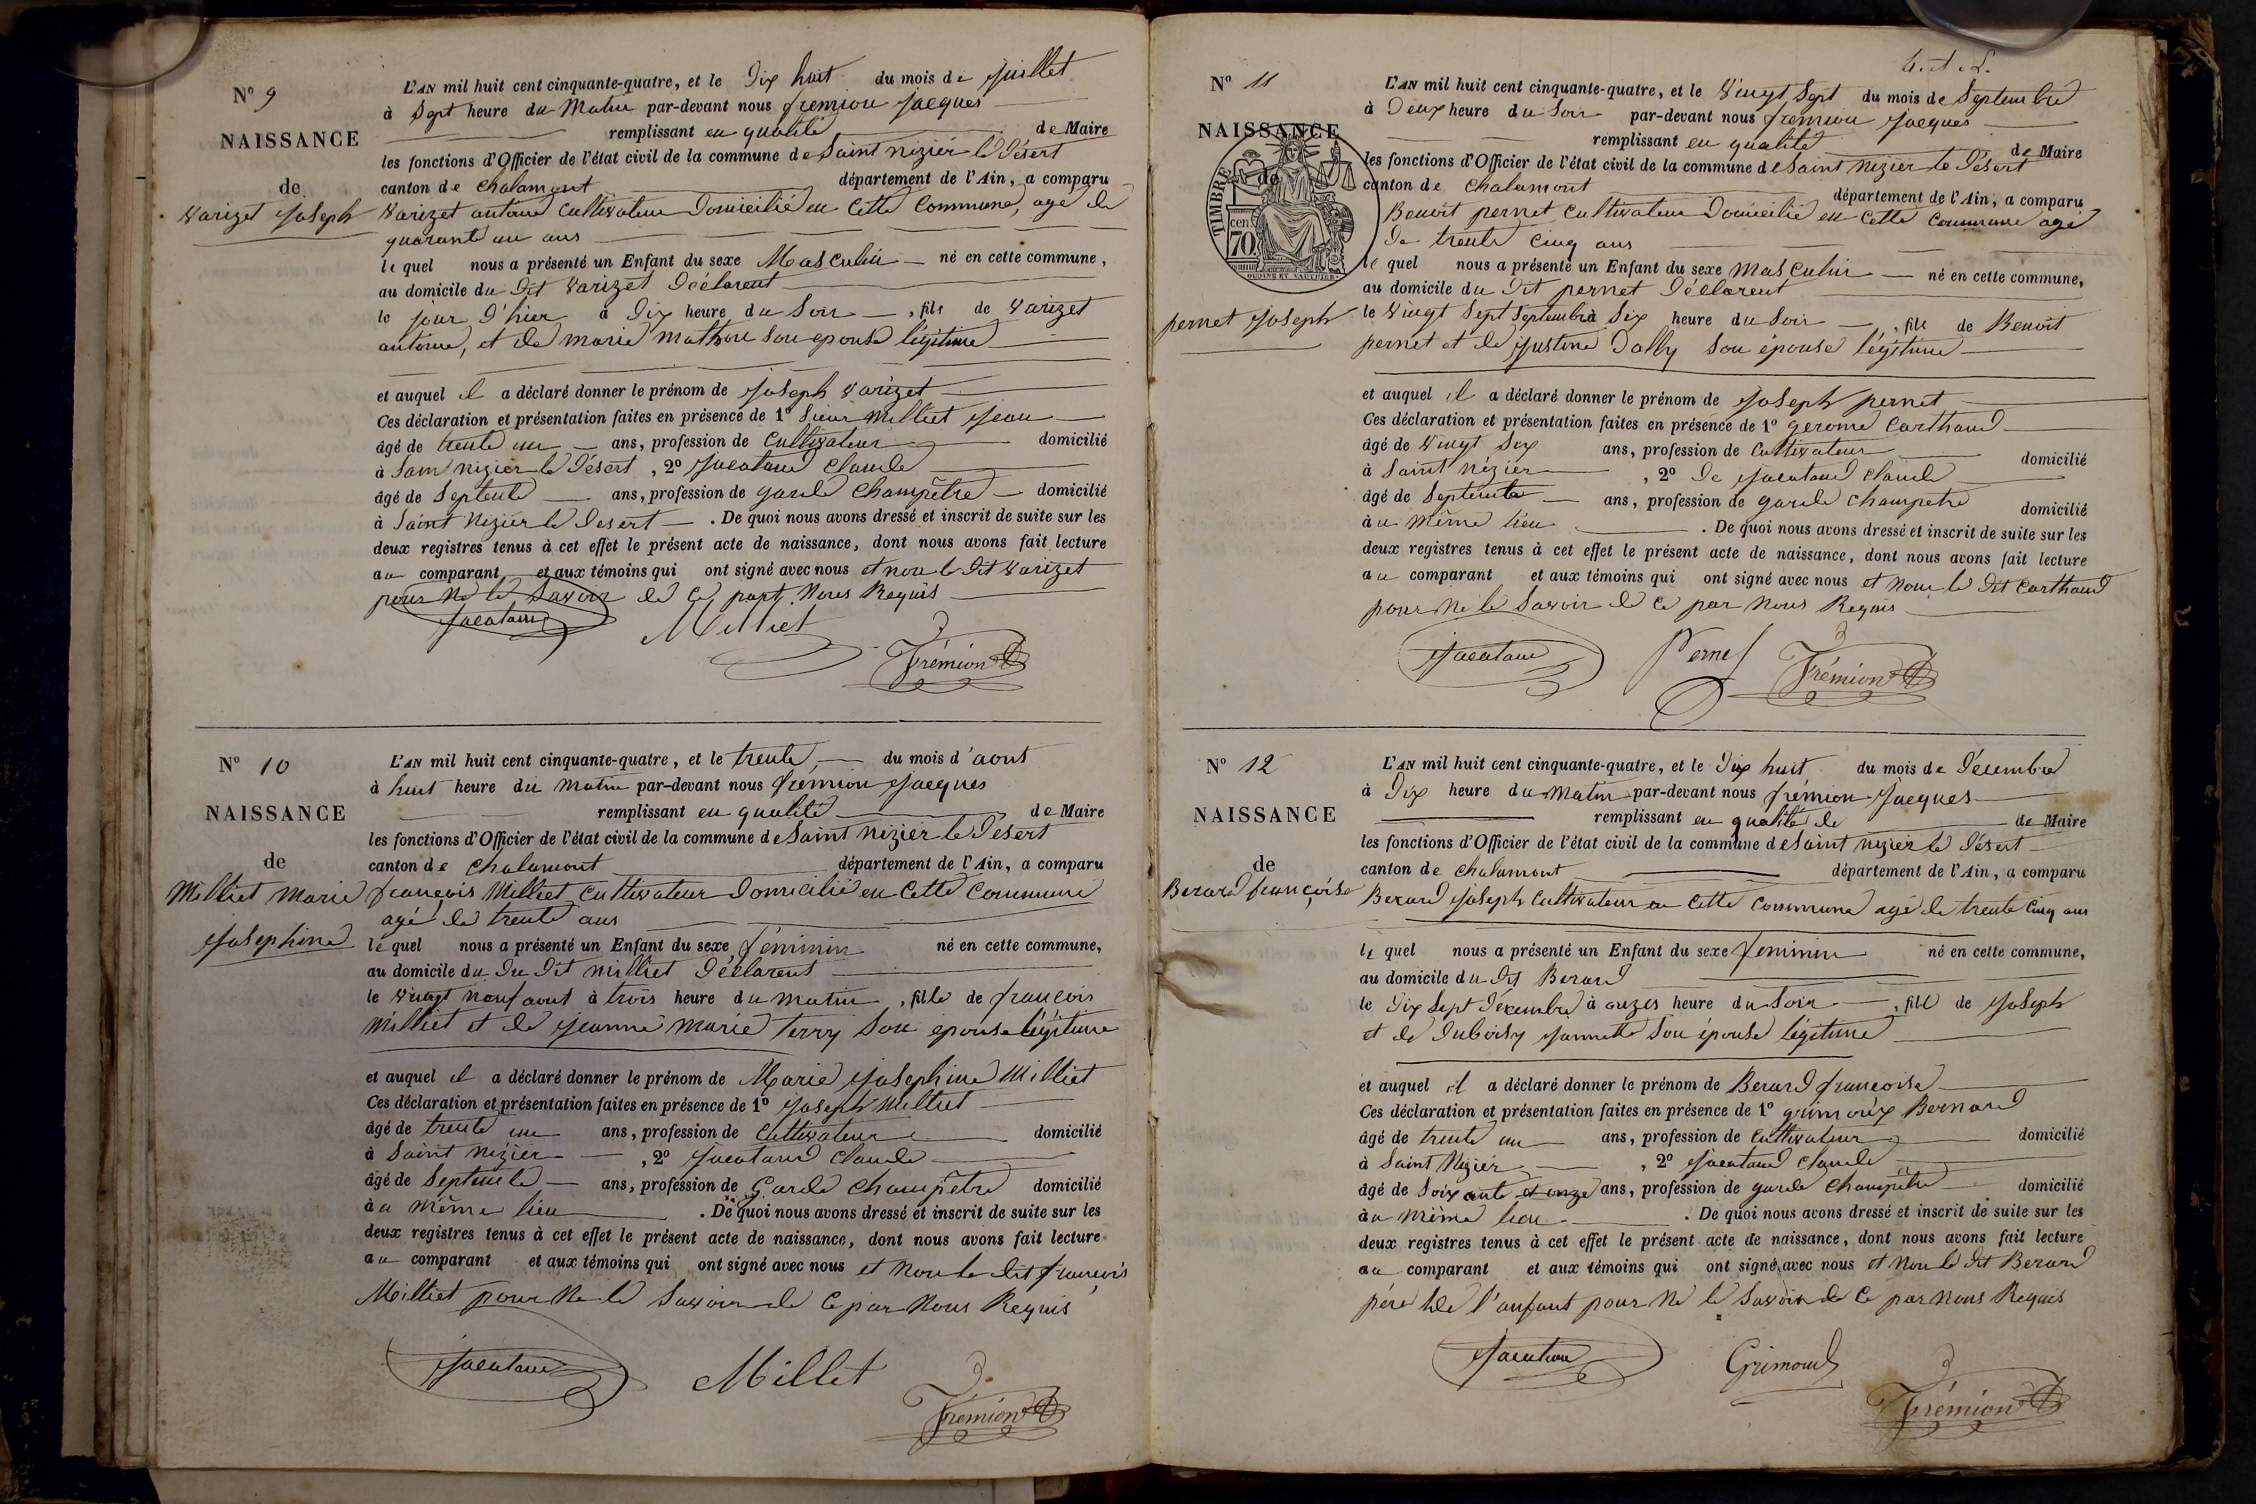 N° 9
NAISSANCE
de
Varizet Joseph
L'AN mil huit cent cinquante-quatre, et le Dix huit du mois de Juillet
à Sept heure du Matin par-devant nous fremion Jacques
remplissant en qualité de Maire
les fonctions d'Officier de l'état civil de la commune de Saint nizier le Désert
canton de chalamont département de l'Ain, a comparu
Varizet antoine cultivateur Domicilié en cette commune, agé de
quarante un ans
le quel nous a présenté un Enfant du sexe Masculin né en cette commune,
au domicile du Dit Varizet Déclarent
le jour d'hier à Dix heure du Soir, fils de Varizet
antoine, et de marie mathon son epouse légitime
et auquel il a déclaré donner le prénom de Joseph Varizet
Ces déclaration et présentation faites en présence de 1° Sieur Milliet Jean
âgé de trente un ans, profession de cultivateur domicilié
à Sain nizier le Désert, 2° Jacataud claude
âgé de Septente ans, profession de garde Champêtre domicilié
à Saint Nizier le Desert. De quoi nous avons dressé et inscrit de suite sur les
deux registres tenus à cet effet le présent acte de naissance, dont nous avons fait lecture
au comparant et aux témoins qui ont signé avec nous et non le Dit Varizet
pour ne le Savoir de ce part Nous Requis
Jacataud Milliet
Frémion
N° 10
NAISSANCE
de
Milliet Marie
Josephine
L'AN mil huit cent cinquante-quatre, et le trente du mois d'aout
à huit heure du matin par-devant nous frémion Jacques
remplissant en qualité de Maire
les fonctions d'Officier de l'état civil de la commune de Saint nizier le Désert
canton de chalamont département de l'Ain, a comparu
françois Milliet cultivateur Domicilié en cette commune
agé de trente ans
le quel nous a présenté un Enfant du sexe féminin né en cette commune,
au domicile du Du Dit milliet Déclarent
le vingt neuf aout à trois heure du matin, fille de françois
Milliet et de jeanne marie terry son epouse légitime
et auquel il a déclaré donner le prénom de Marie Josephine Milliet
Ces déclaration et présentation faites en présence de 1° Joseph Milliet
âgé de trente un ans, profession de cultivateur domicilié
à Saint nizier, 2° Jacataud claude
âgé de Septente ans, profession de Garde Champêtre domicilié
à u même lieu. De quoi nous avons dressé et inscrit de suite sur les
deux registres tenus à cet effet le présent acte de naissance, dont nous avons fait lecture
au comparant et aux témoins qui ont signé avec nous et non le dit françois
Milliet pour ne le Savoir de ce par Nous Requis
Jacataud Millet
Frémion
N° 11
NAISSANCE
de
TIMBRE
cen
70
pernet Joseph
L'AN mil huit cent cinquante-quatre, et le Vingt Sept du mois de Septembre
à Deux heure du Soir par-devant nous fremion Jacques
remplissant en qualité de Maire
les fonctions d'Officier de l'état civil de la commune de Saint Nizier le Désert
canton de chalamont département de l'Ain, a comparu
Benoit pernet cultivateur Domicilié en cette commune agé
de trente cinq ans
le quel nous a présenté un Enfant du sexe masculin né en cette commune,
au domicile du Dit pernet Déclarent
le Vingt Sept Septembre à Six heure du Soir, fils de Benoit
pernet et de Justine Dalby Son épouse légitime
et auquel il a déclaré donner le prénom de Joseph pernet
Ces déclaration et présentation faites en présence de 1° gerome Carthaud
âgé de vingt Six ans, profession de Cultivateur domicilié
à Saint Nézier, 2° De Jacataud claude
âgé de Septente ans, profession de garde champetre domicilié
à u même lieu. De quoi nous avons dressé et inscrit de suite sur les
deux registres tenus à cet effet le présent acte de naissance, dont nous avons fait lecture
au comparant et aux témoins qui ont signé avec nous et non le Dit Carthaud
pour ne le Savoir de ce par Nous Requis
Jacataud Pernet Frémion
N° 12
NAISSANCE
de
Berard françoise
L'AN mil huit cent cinquante-quatre, et le Dix huit du mois de Décembre
à Dix heure du matin par-devant nous frémion Jacques
remplissant en qualité de de Maire
les fonctions d'Officier de l'état civil de la commune de Saint nizier le Désert
canton de chalamont département de l'Ain, a comparu
Berard Joseph cultivateur en cette commune agé de trente cinq ans
le quel nous a présenté un Enfant du sexe feminin né en cette commune,
au domicile du Dit Berard
le Dix Sept Décembre à onzes heure du Soir, fille de Joseph
et de Duboisy Jannette Son épouse légitime
et auquel il a déclaré donner le prénom de Berard françoise
Ces déclaration et présentation faites en présence de 1° grimoux Bernard
âgé de trente un ans, profession de cultivateur domicilié
à Saint Nizier, 2° Jacataud claude
âgé de Soixante et onze ans, profession de garde champêtre domicilié
àu même lieu. De quoi nous avons dressé et inscrit de suite sur les
deux registres tenus à cet effet le présent acte de naissance, dont nous avons fait lecture
au comparant et aux témoins qui ont signé avec nous et non le Dit Berard
père De l'enfant pour ne le Savoir de ce par nous Requis
Jacataud Grimoud
Frémion